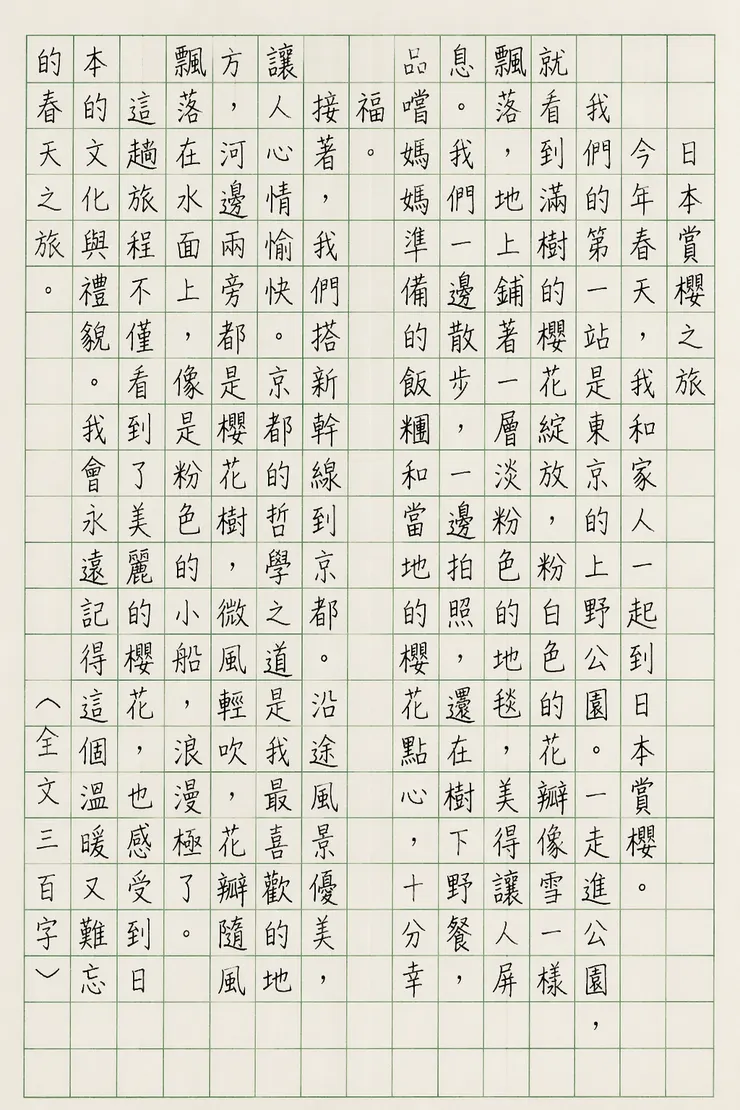 日本賞櫻之旅
今年春天，我和家人一起到日本賞櫻。
我們的第一站是東京的上野公園。一走進公園，
就看到滿樹的櫻花綻放，粉白色的花瓣像雪一樣
飄落，地上鋪著一層淡粉色的地毯，美得讓人屏
息。我們一邊散步，一邊拍照，還在樹下野餐，
品嚐媽媽準備的飯糰和當地的櫻花點心，十分幸
福。
接著，我們搭新幹線到京都。沿途風景優美，
讓人心情愉快。京都的哲學之道是我最喜歡的地
方，河邊兩旁都是櫻花樹，微風輕吹，花瓣隨風
飄落在水面上，像是粉色的小船，浪漫極了。
這趟旅程不僅看到了美麗的櫻花，也感受到日
本的文化與禮貌。我會永遠記得這個溫暖又難忘
的春天之旅。（全文三百字）